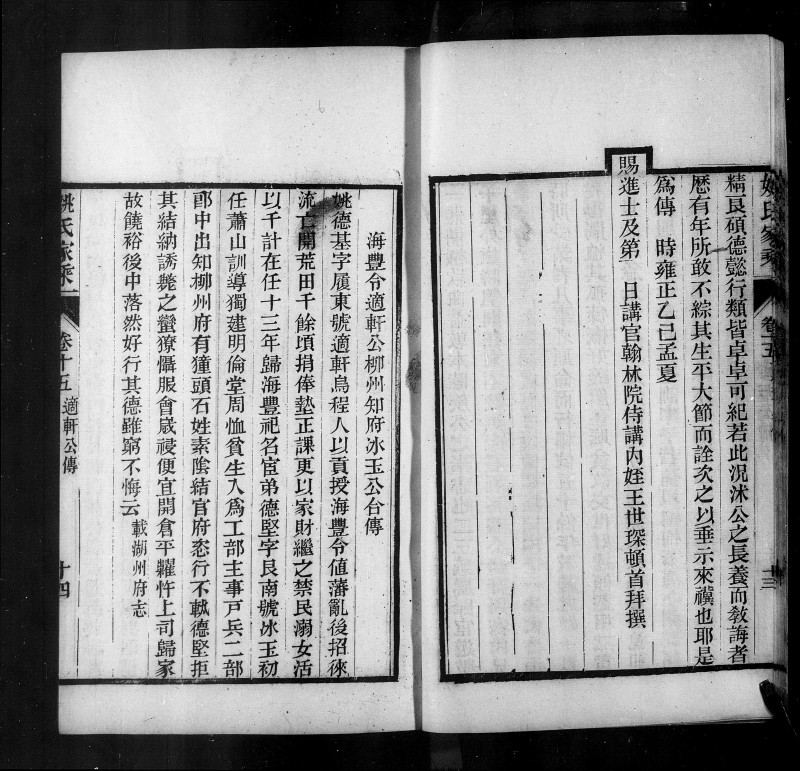 姚氏家乘
卷十五
十三
精艮碩德懿行類皆卓卓可紀若此況沐公之長養而敎誨者
歷有年所敢不綜其生平大節而詮次之以垂示來禩也耶是
爲傳　時雍正乙巳孟夏
賜進士及第　日講官翰林院侍講內姪王世琛頓首拜撰
海豐令適軒公柳州知府冰玉公合傳
姚德基字履東號適軒烏程人以貢授海豐令值藩亂後招徠
流亡開荒田千餘項捐俸墊正課更以家財繼之禁民溺女活
以千計在任十三年歸海豐祀名宦弟德堅字艮南號冰玉初
任蕭山訓導獨建明倫堂周恤貧生入爲工部主事戸兵二部
郎中出知柳州府有獞頭石姓素陰結官府恣行不軌德堅拒
其結納誘斃之蠻獠懾服會歲祲便宜開倉平糶忤上司歸家
故饒裕後中落然好行其德雖窮不悔云　載湖州府志
姚氏家乘
卷十五　適軒公傳
十四